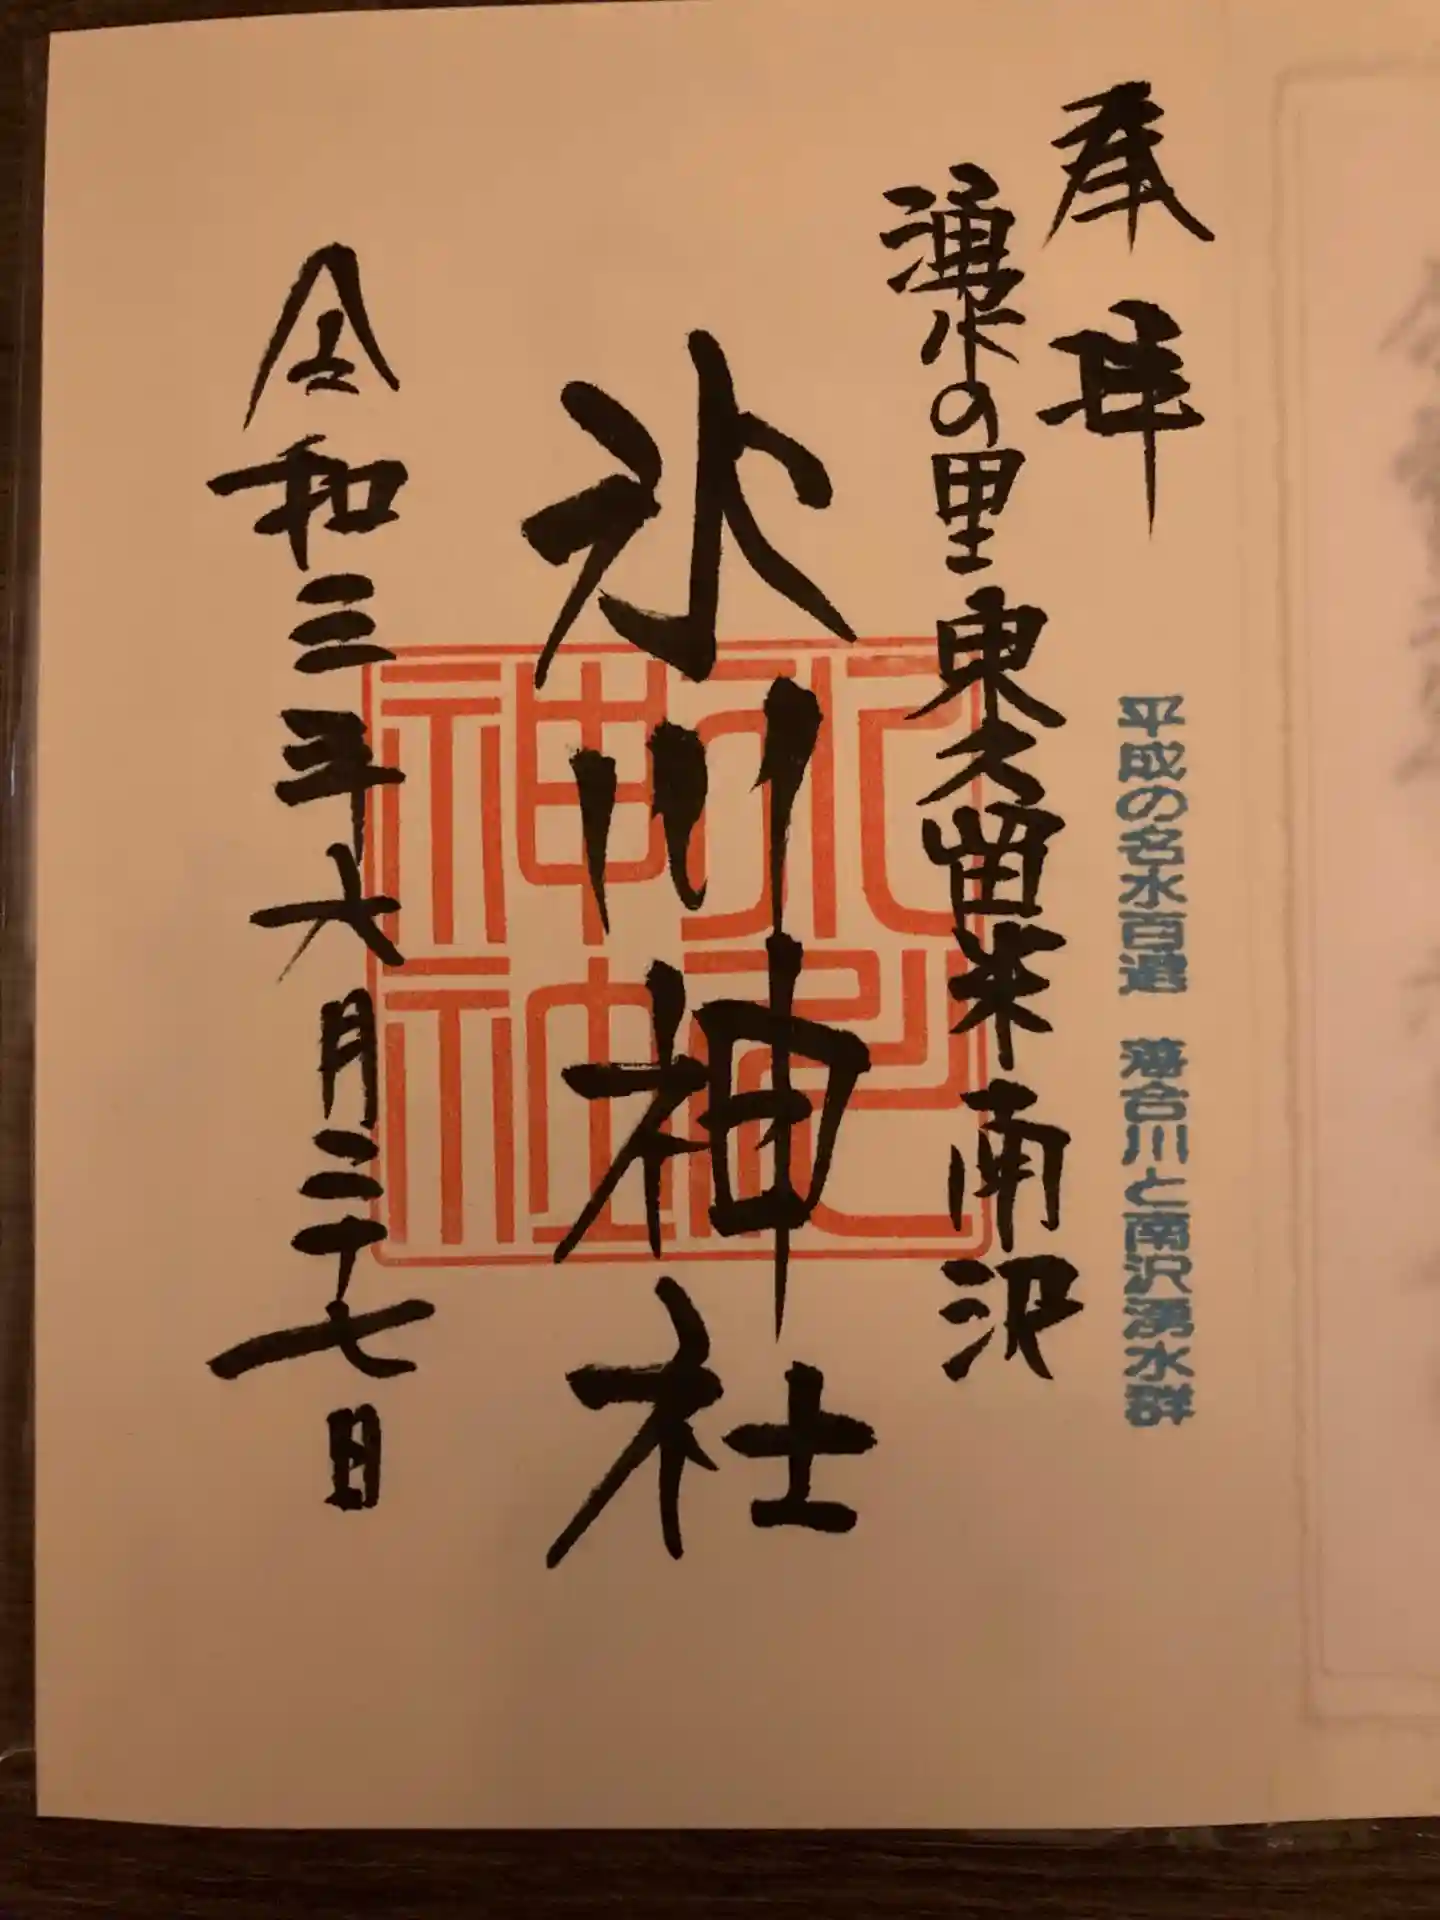 奉拝
平成の名水百選 落合川と南沢湧水群
湧水の里東久留米南沢
氷川神社
氷川神社
令和三年六月二十七日